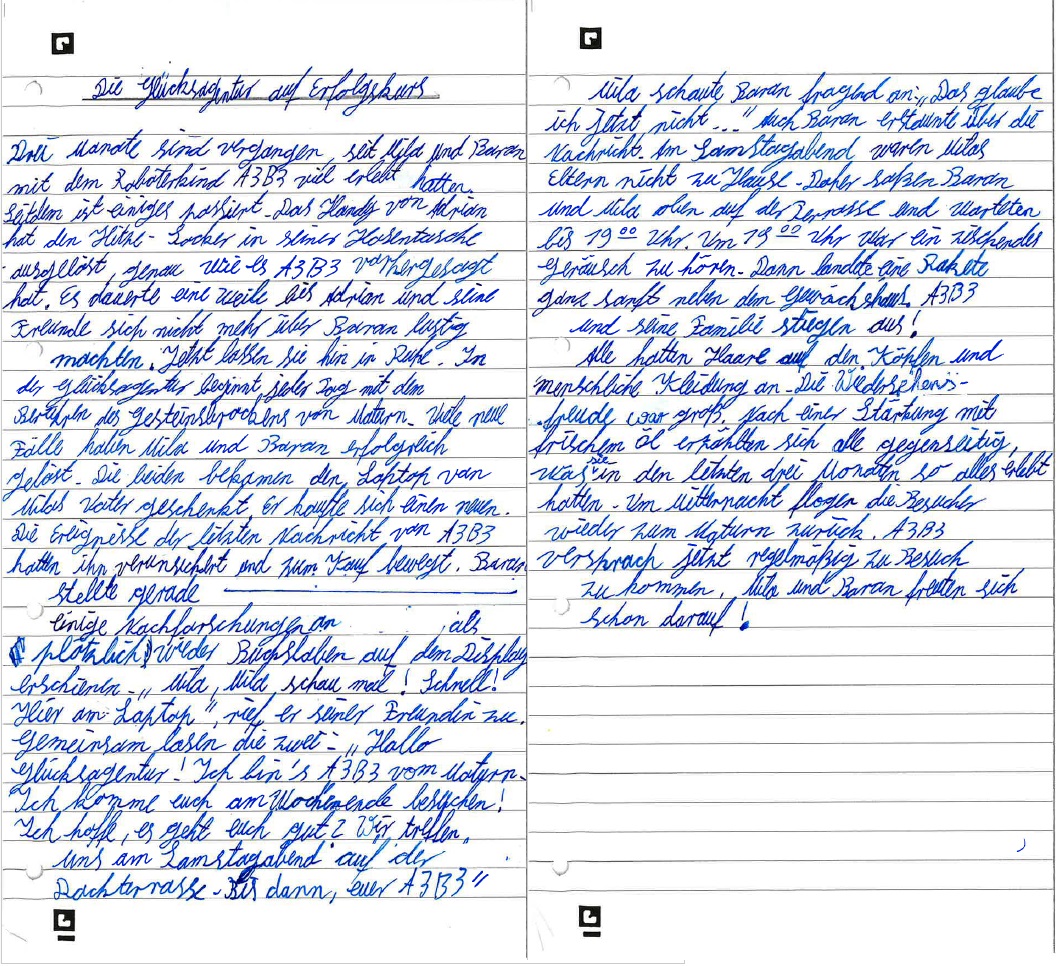 Die Glücksagentur auf Erfolgskurs
Drei Monate sind vergangen, seit Mila und Baran
mit dem Roboterkind A3B3 viel erlebt hatten.
Seitdem ist einiges passiert. Das Handy von Adrian
hat den Hitze-Locker in seiner Hosentasche
ausgelöst, genau wie es A3B3 vorhergesagt
hat. Es dauerte eine Weile bis Adrian und seine
Freunde sich nicht mehr über Baran lustig
machten. Jetzt lassen sie hin in Ruhe. In
der Glücksagentur beginnt jeder Tag mit dem
Berühren des Gesteinsbrockens von Maturn. Viele neue
Fälle hatten Mila und Baran erfolgreich
gelöst. Die beiden bekamen den Laptop von
Milas Vater geschenkt. Er kaufte sich einen neuen.
Die Ereignisse der letzten Nachricht von A3B3
hatten ihn verunsichert und zum Kauf bewegt. Baran
stellte gerade
einige Nachforschungen an , als
plötzlich wieder Buchstaben auf dem Display
erschienen. „Mila, Mila, schau mal! Schnell!
Hier am Laptop", rief er seiner Freundin zu.
Gemeinsam lasen die zwei: „Hallo
Glücksagentur! Ich bin's A3B3 vom Maturn.
Ich komme euch am Wochenende besuchen!
Ich hoffe, es geht euch gut? Wir treffen
uns am Samstagabend auf der
Dachterrasse. Bis dann, euer A3B3"
Mila schaute Baran fragend an: „Das glaube
ich jetzt nicht..." Auch Baran erstaunte über die
Nachricht. Am Samstagabend waren Milas
Eltern nicht zu Hause. Daher saßen Baran
und Mila oben auf der Terrasse und warteten
bis 19 00 Uhr. Um 19 00 Uhr war ein zischendes
Geräusch zu hören. Dann landete eine Rakete
ganz sanft neben dem Gewächshaus. A3B3
und seine Familie stiegen aus!
Alle hatten Haare auf den Köpfen und
menschliche Kleidung an. Die Wiedersehens-
freude war groß. Nach einer Stärkung mit
frischem Öl erzählten sich alle gegenseitig,
was sie in den letzten drei Monaten so alles erlebt
hatten. Um Mitternacht flogen die Besucher
wieder zum Maturn zurück. A3B3
versprach jetzt regelmäßig zu Besuch
zu kommen. Mila und Baran freuten sich
schon darauf!